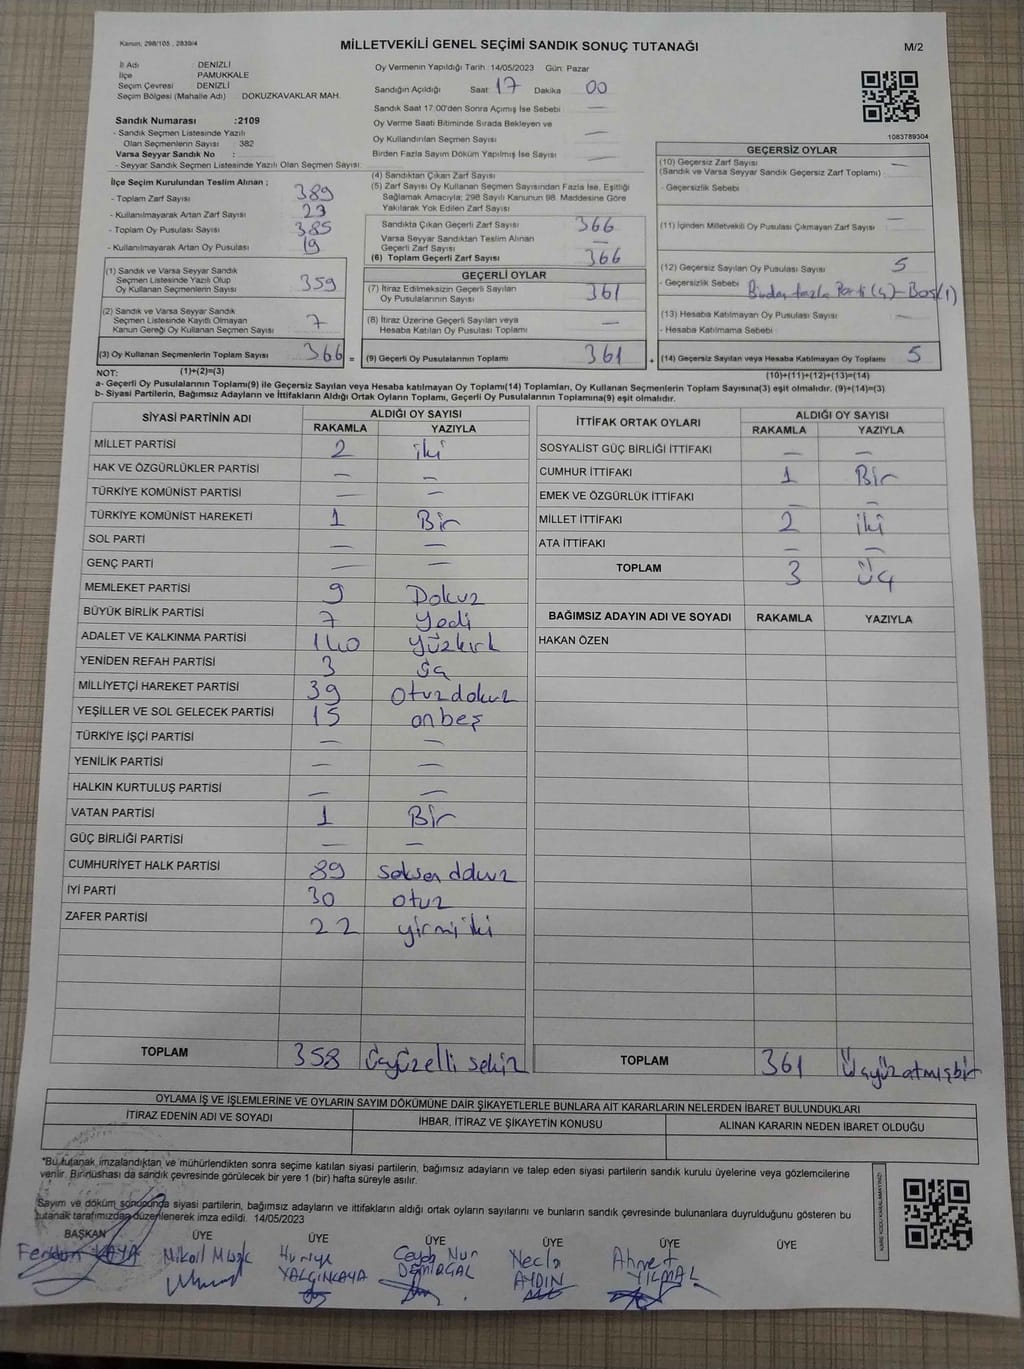 Kanun, 298/105 , 2839/4
MİLLETVEKİLİ GENEL SEÇİMİ SANDIK SONUÇ TUTANAĞI
M/2
İl Adı : DENİZLİ
İlçe : PAMUKKALE
Seçim Çevresi : DENİZLİ
Seçim Bölgesi (Mahalle Adı) DOKUZKAVAKLAR MAH.
Sandık Numarası :2109
- Sandık Seçmen Listesinde Yazılı
Olan Seçmenlerin Sayısı : 382
Varsa Seyyar Sandık No :
- Seyyar Sandık Seçmen Listesinde Yazılı Olan Seçmen Sayısı:
Oy Vermenin Yapıldığı Tarih :14/05/2023 Gün: Pazar
Sandığın Açıldığı Saat 17 Dakika 00
Sandık Saat 17:00'den Sonra Açılmış İse Sebebi —
Oy Verme Saati Bitiminde Sırada Bekleyen ve
Oy Kullandırılan Seçmen Sayısı —
Birden Fazla Sayım Döküm Yapılmış İse Sayısı —
1083789304
İlçe Seçim Kurulundan Teslim Alınan ;
- Toplam Zarf Sayısı 389
- Kullanılmayarak Artan Zarf Sayısı 23
- Toplam Oy Pusulası Sayısı 385
- Kullanılmayarak Artan Oy Pusulası 19
(1) Sandık ve Varsa Seyyar Sandık
Seçmen Listesinde Yazılı Olup
Oy Kullanan Seçmenlerin Sayısı 359
(2) Sandık ve Varsa Seyyar Sandık
Seçmen Listesinde Kayıtlı Olmayan
Kanun Gereği Oy Kullanan Seçmen Sayısı 7
(3) Oy Kullanan Seçmenlerin Toplam Sayısı 366 =
(4) Sandıktan Çıkan Zarf Sayısı
(5) Zarf Sayısı Oy Kullanan Seçmen Sayısından Fazla İse, Eşitliği
Sağlamak Amacıyla; 298 Sayılı Kanunun 98. Maddesine Göre
Yakılarak Yok Edilen Zarf Sayısı
Sandıkta Çıkan Geçerli Zarf Sayısı 366
Varsa Seyyar Sandıktan Teslim Alınan
Geçerli Zarf Sayısı —
(6) Toplam Geçerli Zarf Sayısı 366
GEÇERLİ OYLAR
(7) İtiraz Edilmeksizin Geçerli Sayılan
Oy Pusulalarının Sayısı 361
(8) İtiraz Üzerine Geçerli Sayılan veya
Hesaba Katılan Oy Pusulası Toplamı —
(9) Geçerli Oy Pusulalarının Toplamı 361 +
GEÇERSİZ OYLAR
(10) Geçersiz Zarf Sayısı —
(Sandık ve Varsa Seyyar Sandık Geçersiz Zarf Toplamı)
- Geçersizlik Sebebi
(11) İçinden Milletvekili Oy Pusulası Çıkmayan Zarf Sayısı —
(12) Geçersiz Sayılan Oy Pusulası Sayısı 5
- Geçersizlik Sebebi Birden fazla Parti (4) - Boş (1)
(13) Hesaba Katılmayan Oy Pusulası Sayısı —
- Hesaba Katılmama Sebebi
(14) Geçersiz Sayılan veya Hesaba Katılmayan Oy Toplamı 5
NOT: (1)+(2)=(3) (10)+(11)+(12)+(13)=(14)
a- Geçerli Oy Pusulalarının Toplamı(9) ile Geçersiz Sayılan veya Hesaba katılmayan Oy Toplamı(14) Toplamları, Oy Kullanan Seçmenlerin Toplam Sayısına(3) eşit olmalıdır. (9)+(14)=(3)
b- Siyasi Partilerin, Bağımsız Adayların ve İttifakların Aldığı Ortak Oyların Toplamı, Geçerli Oy Pusulalarının Toplamına(9) eşit olmalıdır.
SİYASİ PARTİNİN ADI ALDIĞI OY SAYISI
RAKAMLA YAZIYLA
MİLLET PARTİSİ 2 iki
HAK VE ÖZGÜRLÜKLER PARTİSİ — —
TÜRKİYE KOMÜNİST PARTİSİ — —
TÜRKİYE KOMÜNİST HAREKETİ 1 Bir
SOL PARTİ — —
GENÇ PARTİ — —
MEMLEKET PARTİSİ 9 Dokuz
BÜYÜK BİRLİK PARTİSİ 7 Yedi
ADALET VE KALKINMA PARTİSİ 140 yüzkırk
YENİDEN REFAH PARTİSİ 3 üç
MİLLİYETÇİ HAREKET PARTİSİ 39 otuzdokuz
YEŞİLLER VE SOL GELECEK PARTİSİ 15 onbeş
TÜRKİYE İŞÇİ PARTİSİ — —
YENİLİK PARTİSİ — —
HALKIN KURTULUŞ PARTİSİ — —
VATAN PARTİSİ 1 Bir
GÜÇ BİRLİĞİ PARTİSİ — —
CUMHURİYET HALK PARTİSİ 89 seksen dokuz
İYİ PARTİ 30 otuz
ZAFER PARTİSİ 22 yirmi iki
TOPLAM 358 üçyüzelli sekiz
İTTİFAK ORTAK OYLARI ALDIĞI OY SAYISI
RAKAMLA YAZIYLA
SOSYALİST GÜÇ BİRLİĞİ İTTİFAKI — —
CUMHUR İTTİFAKI 1 Bir
EMEK VE ÖZGÜRLÜK İTTİFAKI — —
MİLLET İTTİFAKI 2 iki
ATA İTTİFAKI — —
TOPLAM 3 Üç
BAĞIMSIZ ADAYIN ADI VE SOYADI RAKAMLA YAZIYLA
HAKAN ÖZEN
TOPLAM 361 Üçyüzatmışbir
OYLAMA İŞ VE İŞLEMLERİNE VE OYLARIN SAYIM DÖKÜMÜNE DAİR ŞİKAYETLERLE BUNLARA AİT KARARLARIN NELERDEN İBARET BULUNDUKLARI
İTİRAZ EDENİN ADI VE SOYADI İHBAR, İTİRAZ VE ŞİKAYETİN KONUSU ALINAN KARARIN NEDEN İBARET OLDUĞU
*Bu tutanak imzalandıktan ve mühürlendikten sonra seçime katılan siyasi partilerin, bağımsız adayların ve talep eden siyasi partilerin sandık kurulu üyelerine veya gözlemcilerine
verilir. Bir nüshası da sandık çevresinde görülecek bir yere 1 (bir) hafta süreyle asılır.
Sayım ve döküm sonucunda siyasi partilerin, bağımsız adayların ve ittifakların aldığı ortak oyların sayılarını ve bunların sandık çevresinde bulunanlara duyrulduğunu gösteren bu
tutanak tarafımızdan düzenlenerek imza edildi. 14/05/2023
BAŞKAN ÜYE ÜYE ÜYE ÜYE ÜYE ÜYE
KAYA Mikail Huriye YALÇINKAYA Ceyda Nur DEMİRÇAL Necla AYDIN Ahmet YILMAZ